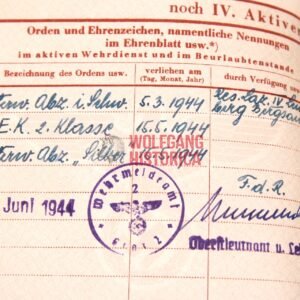 noch IV. Aktive
Orden und Ehrenzeichen, namentliche Nennungen
im Ehrenblatt usw.*)
im aktiven Wehrdienst und im Beurlaubtenstande
Bezeichnung des Ordens usw. verliehen am durch Verfügung
(Tag, Monat, Jahr)
Verw. Abz. i. Schw. 5.3.1944 Res. Laz. IV
E.K. 2. Klasse 15.5.1944
Verw. Abz. „Silber 1944
WOLFGANG
HISTORICA
F.d.R.
Juni 1944
Wehrmeldeamt
2
Oberstleutnant u.